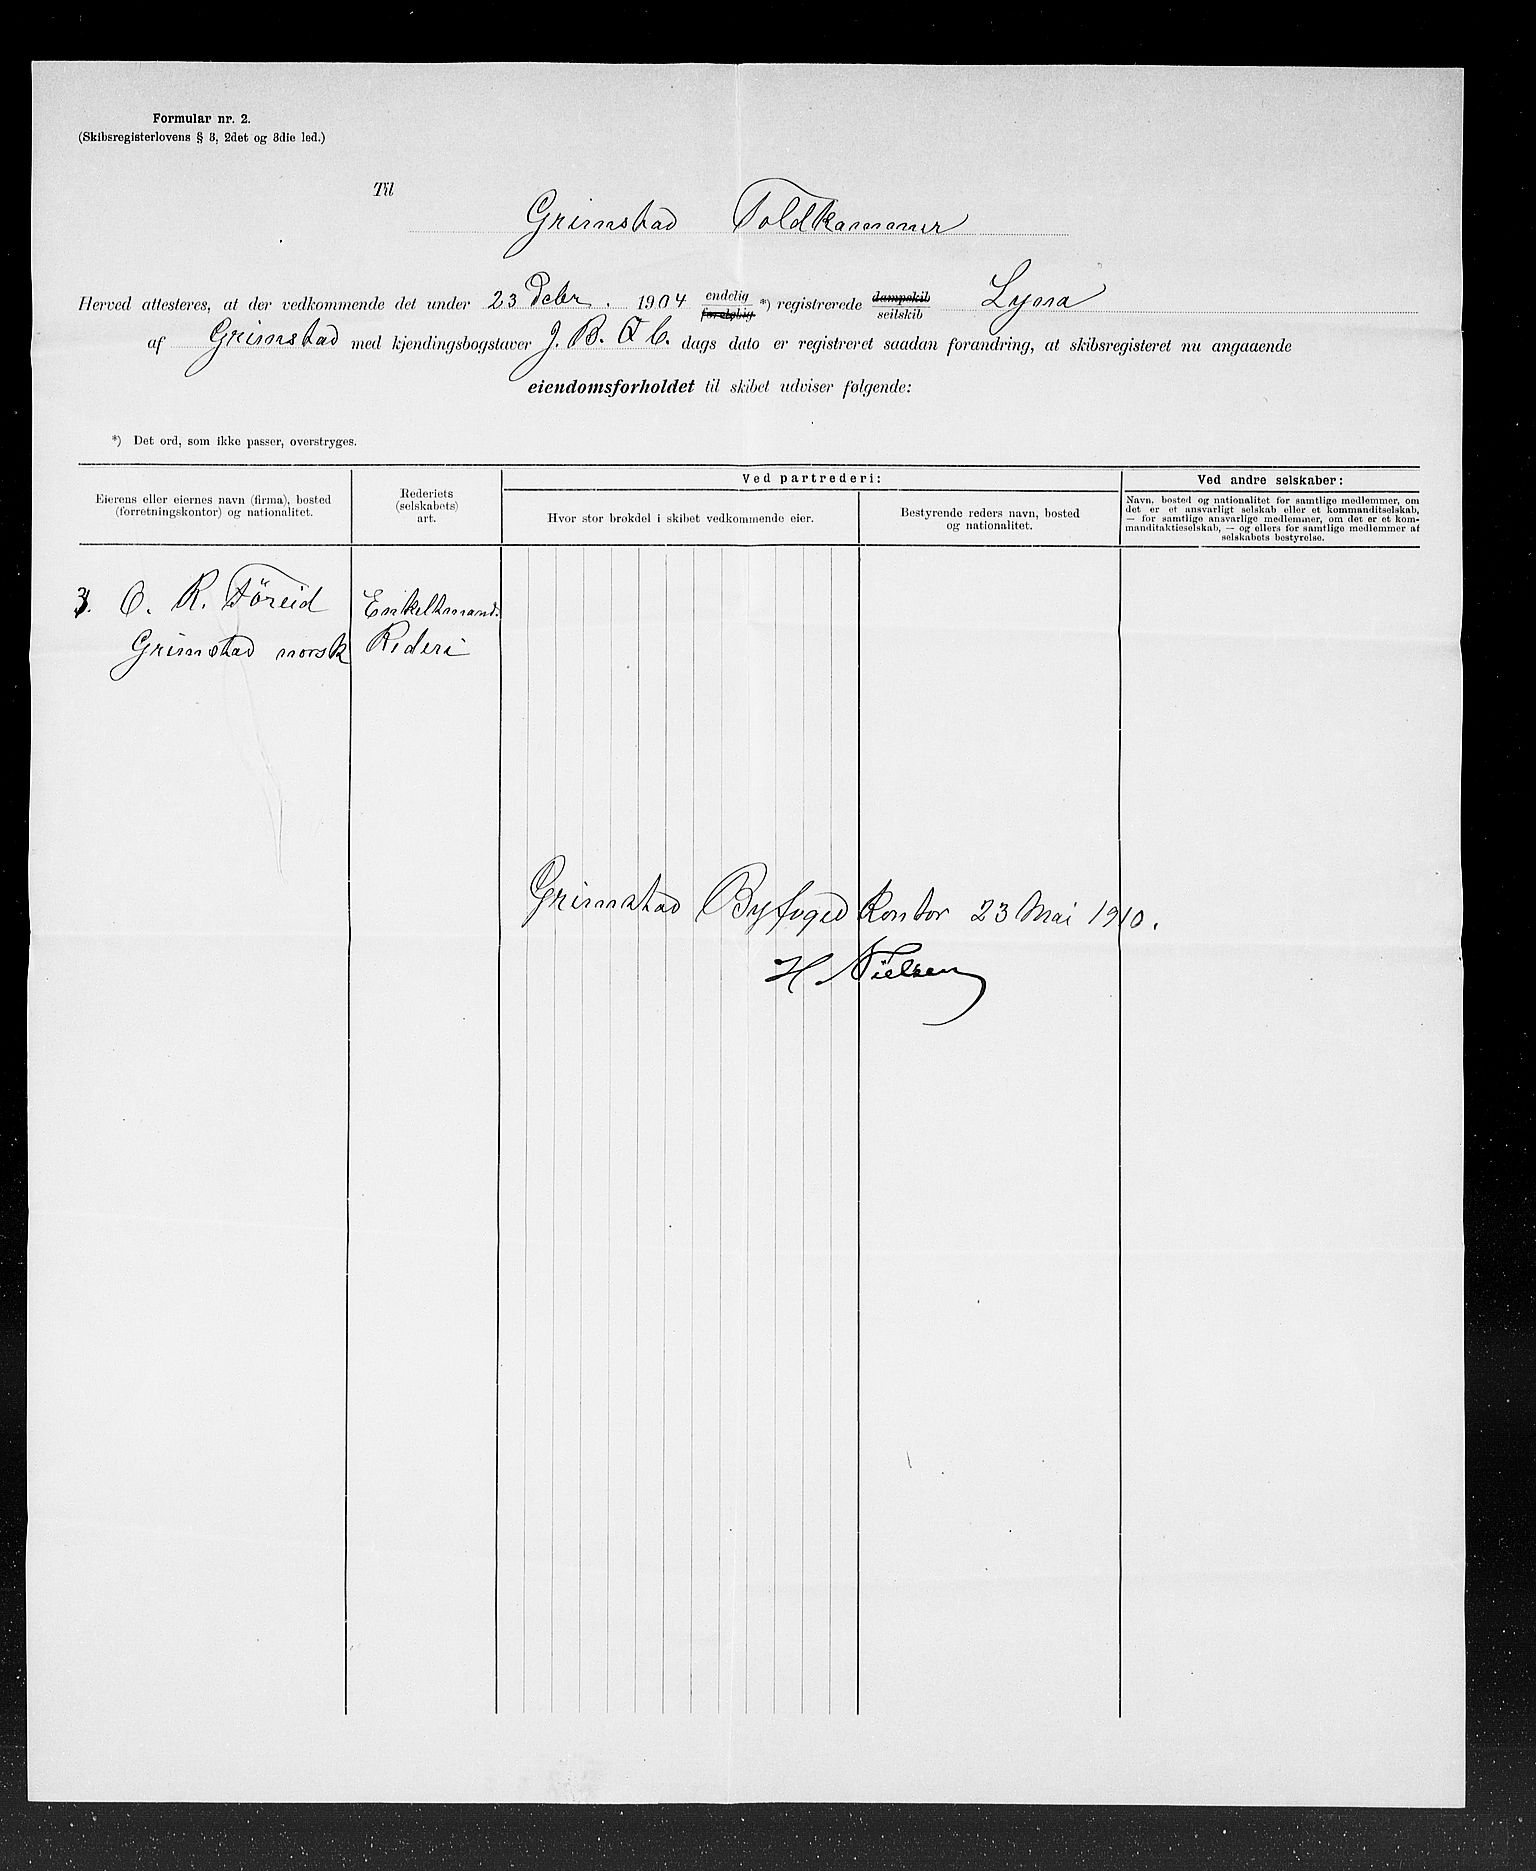 Formular nr. 2.
(Skibsregisterlovens § 3, 2det og 3die led.)
Til
Grimstad Toldkammer
Herved attesteres, at der vedkommende det under 23 Debr. 1904 endelig foreløbig *) registrerede dampskib seilskib
af Grimstad med kjendingsbogstaver J. B. Q C. dags dato er registreret saadan forandring, at skibsregisteret nu angaaende
eiendomsforholdet til skibet udviser følgende:
*) Det ord, som ikke passer, overstryges.
Eierens eller eiernes navn (firma), bosted
(forretningskontor) og nationalitet.
Rederiets
(selskabets)
art.
Ved partrederi:
Hvor stor brøkdel i skibet vedkommende eier.
Bestyrende reders navn, bosted
og nationalitet.
Ved andre selskaber:
Navn, bosted og nationalitet for samtlige medlemmer, om
det er et ansvarligt selskab eller et kommanditselskab,
— for samtlige ansvarlige medlemmer, om det er et kom-
manditaktieselskab, — og ellers for samtlige medlemmer af
selskabets bestyrelse.
O. R. Töreid
Grimstad norsk
Enkeltmand.
Rederi
Grimstad Byfoged Kontor 23 Mai 1910.
H Nielsen